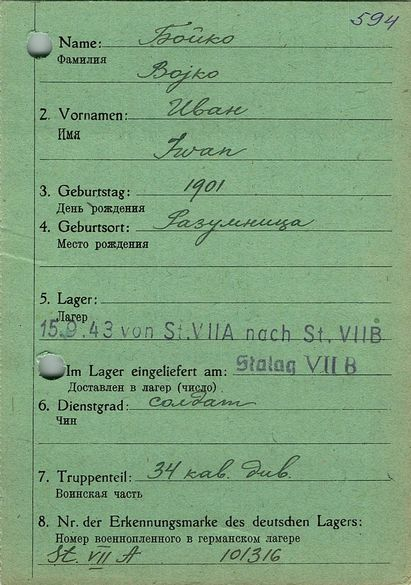 594
Name: Бойко
Фамилия
Bojko
2. Vornamen: Иван
Имя
Iwan
3. Geburtstag: 1901
День рождения
4. Geburtsort: Разумница
Место рождения
5. Lager:
Лагер
15.9.43 von St.VIIA nach St. VIIB
Im Lager eingeliefert am: Stalag VII B
Доставлен в лагер (число)
6. Dienstgrad: солдат
Чин
7. Truppenteil: 34 кав. див.
Воинская часть
8. Nr. der Erkennungsmarke des deutschen Lagers:
Номер военнопленного в германском лагере
St. VII A 101316